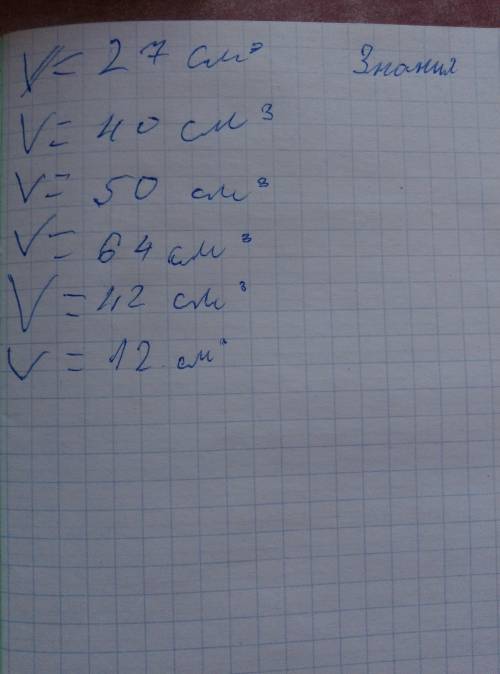 V = 27 см³ Знания
V = 40 см³
V = 50 см³
V = 64 см³
V = 42 см³
V = 12 см³